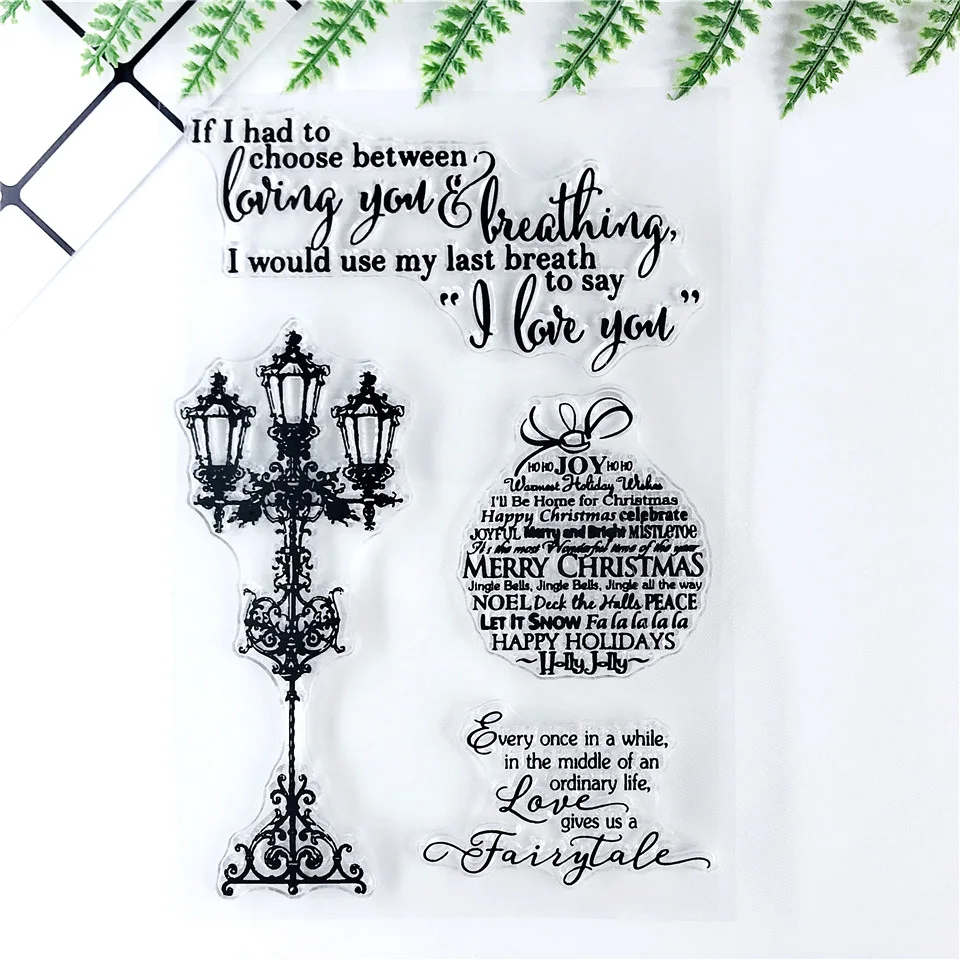 If I had to
choose between
loving you &
breathing,
I would use my last breath
to say
"I love you"
HO HO JOY HO HO
Warmest Holiday Wishes
I'll Be Home for Christmas
Happy Christmas celebrate
JOYFUL Merry and Bright MISTLETOE
It's the most Wonderful time of the year
MERRY CHRISTMAS
Jingle Bells, Jingle Bells, Jingle all the way
NOEL Deck the Halls PEACE
LET IT SNOW Fa la la la la
HAPPY HOLIDAYS
~Holly Jolly~
Every once in a while,
in the middle of an
ordinary life,
Love
gives us a
Fairytale